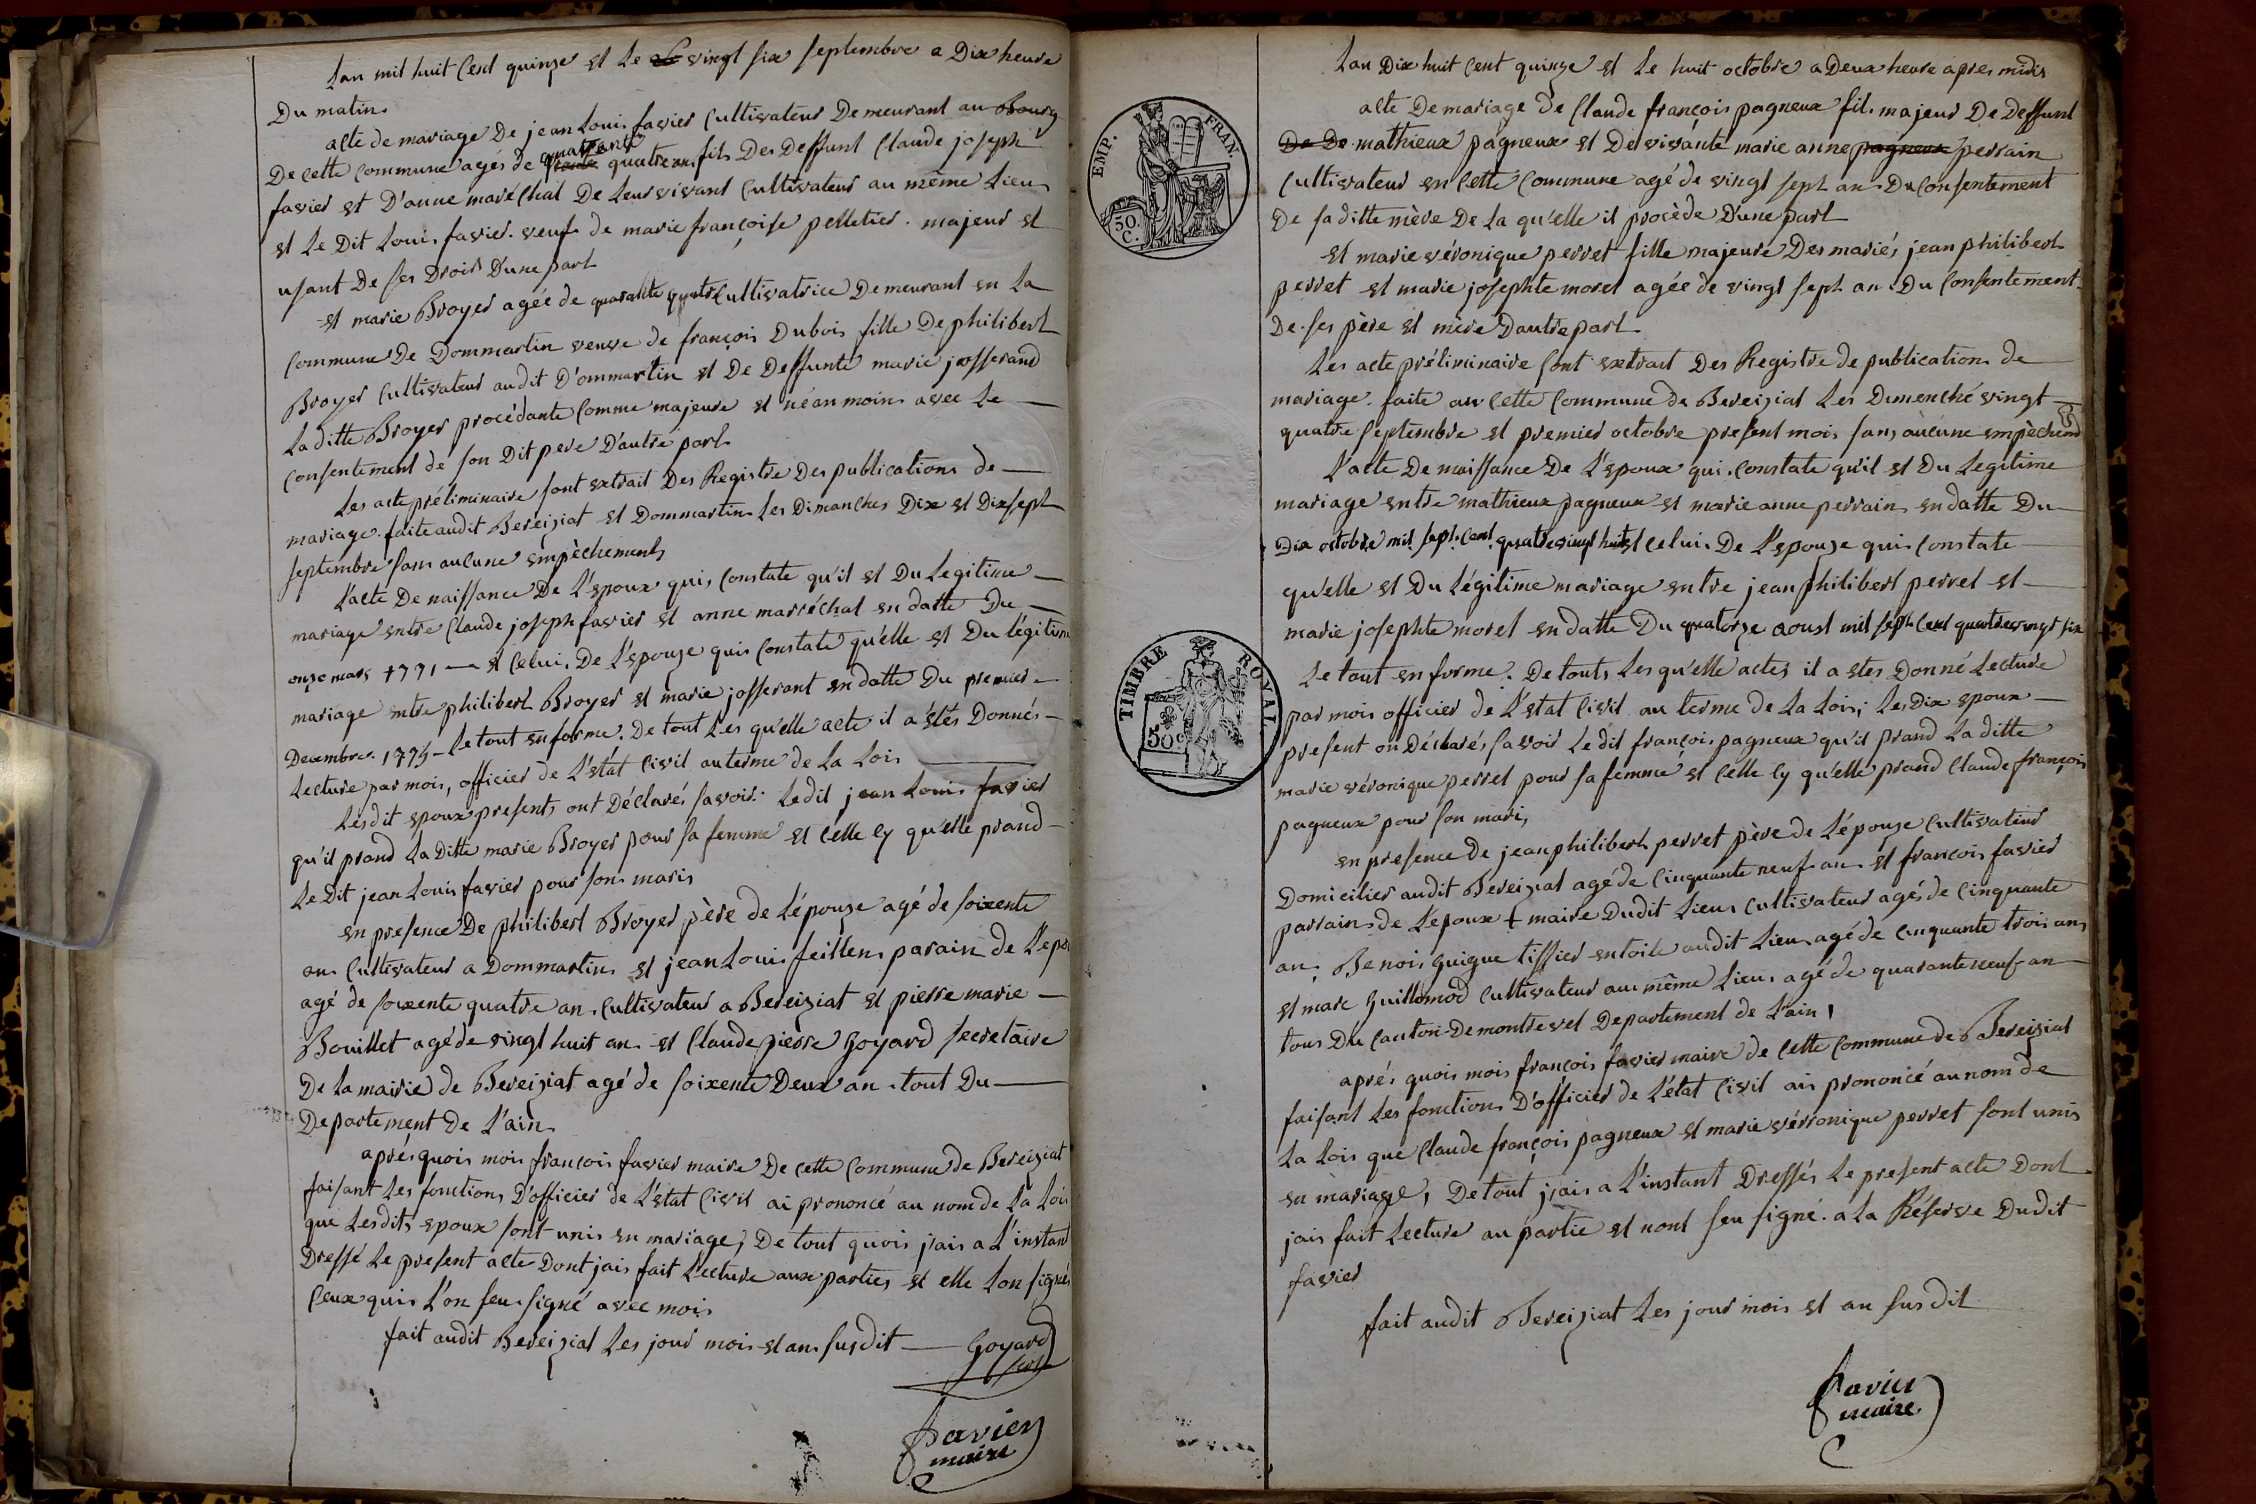 Lan mil huit Cent quinze et Le vingt six septembre a Dix heure
Du matin
acte de mariage De jean Louis favier Cultivateur Demeurant au Bourg
De cette Commune agés de quarante quatre an fils Des Deffunt Claude joseph
favier et D'anne maréchal De Leur vivant Cultivateur au même Lieu
et Le Dit Louis favier veuf de marie françoise pelletier majeur et
usant De ses Droit D'une part
et marie Broyer agée de quarante quatre Cultivatrice Demeurant en La
Commune De Dommartin veuve de françois Dubois fille De philibert
Broyer Cultivateur audit D'ommartin et De Deffunte marie josserand
La ditte Broyer procédante Comme majeure et néanmoins avec Le
Consentement de son Dit pere D'autre part
Les acte préliminaire sont extrait Des Registre Des publications de
mariage faite audit Bereiziat et Dommartin Les Dimanches Dix et Dix sept
septembre sans aucune empêchements
L'acte De naissance De L'epoux qui Constate qu'il et Du Legitime
mariage entre Claude joseph favier et anne marréchal en datte Du
onze mars 1771 et Celui De L'epouze qui Constate qu'elle et Du légitime
mariage entre philibert Broyer et marie josserant en datte Du premier
Decembre 1775 Le tout en forme. De tout Les qu'elle acte il a étés Donnés
Lecture par mois, officier de L'état Civil au terme de La Lois
Lesdit epoux presents ont Déclarés savoir Ledit jean Louis favier
qu'il prand La Ditte marie Broyer pour sa femme et Celle Cy qu'elle prand
Le Dit jean Louis favier pour son maris
en presence De philibert Broyer père de L'épouze agé de soixente
an Cultivateur a Dommartin et jean Louis feillens parain de L'epo
agé de soixente quatre an Cultivateur a Bereiziat et pierre marie
Bouillet agé de vingt huit an et Claude pierre Goyard secretaire
De La mairie de Bereiziat agé de soixente Deux an tout Du
Departement De L'ain
aprés quois mois françois favier maire De cette Commune de Bereiziat
faisant Les fonctions D'officier de L'état Civil ai prononcé au nom de La Lois
que Lesdits epoux sont unis en mariage, De tout quois j'ais a L'instant
Dressé Le present acte Dont jais fait Lecture aux parties et elle Lon signés
Ceux quis L'on seu signé avec mois
fait audit Bereiziat Les jour mois et an susdit Goyard
favier
maire
EMP. FRAN.
50
C.
TIMBRE ROYAL
50c
Lan Dix huit Cent quinze et Le huit octobre a Deux heure apres midis
acte De mariage de Claude françois pagneux fils majeur De Deffunt
De De mathieux pagneux et De vivante marie anne pagneux perrain
Cultivateur en Cette Commune agé de vingt sept an Du Consentement
De sa ditte mère De La qu'elle il procède D'une part
et marie véronique perret fille majeure Des mariés jean philibert
perret et marie josephte morel agée de vingt sept an Du Consentement
De ses père et mère D'autre part
Les acte préliminaire sont extrait Des Registre de publications de
mariage faite au Cette Commune de Bereiziat Les Dimenche vingt
quatre septembre et premier octobre present mois sans aucune empècheme
L'acte De naissance De L'epoux qui Constate qu'il et Du Legitime
mariage entre mathieux pagneux et marie anne perrain en datte Du
Dix octobre mil sept Cent quatre vingt huit et celui De L'epouze qui constate
qu'elle et Du Légitime mariage entre jean philibert perret et
marie josephte morel en datte Du quatorze aoust mil sept Cent quatre vingt six
Le tout en forme. De touts Les qu'elle actes il a etes Donné Lecture
par mois officier de L'état Civil au terme de La Lois, Les Dix epoux
present on Déclarés savoir Le dit françois pagneux qu'il prand La ditte
marie véronique perret pour sa femme et Celle Cy qu'elle prand Claude françois
pagneux pour son mari,
en presence de jean philibert perret père de L'épouze Cultivateur
Domicilier audit Bereiziat agé de Cinquante neuf an et françois favier
parrain de L'epoux + maire Dudit Lieu Cultivateur agés de Cinquante
an Benois guigue tissier en toile audit Lieu agé de Cinquante trois an
et marc guillomod Cultivateur au même Lieu agé de quarante neuf an
tous Du Canton De montrevel Departement de L'ain,
aprés quois mois françois favier maire de Cette Commune de Bereiziat
faisant Les fonctions D'officier de L'état Civil ais prononcé au nom de
La Lois que Claude françois pagneux et marie vérronique perret sont unis
en mariage, De tout j'ais a L'instant Dressés Le present acte Dont
jais fait Lecture au partie et nont seu signé a La Réserve Dudit
favier
fait audit Bereiziat Les jour mois et an susdit
favier
maire